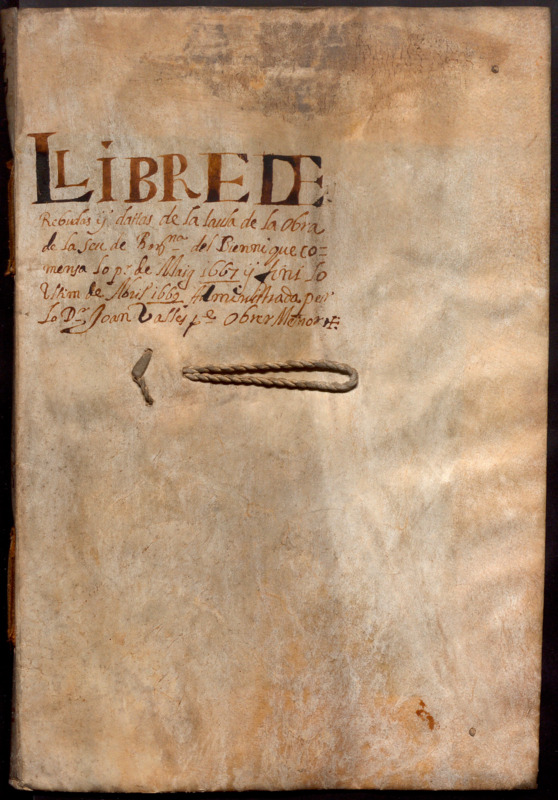 LLIBRE DE
Rebudas y datas de la taula de la Obra
de la Seu de Barna. del Bienni que co=
mensa lo pr. de Maig 1667 y fini lo
Ultim de Abril 1669 Administrada per
Lo Dr. Joan Valles pre. Obrer Menor